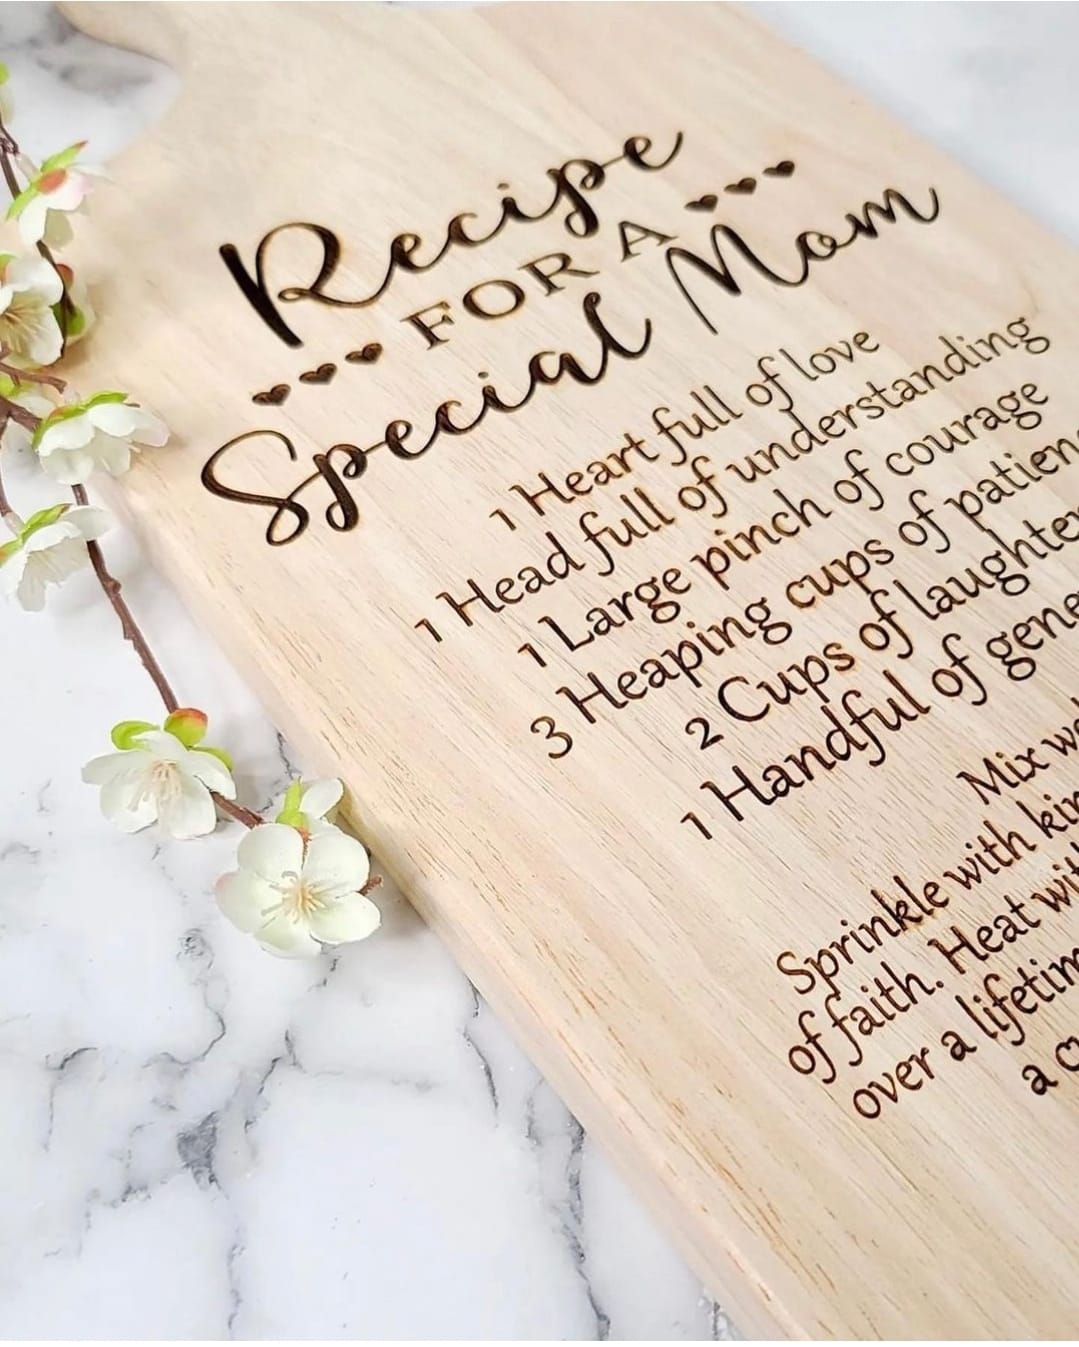 Recipe
FOR A
Special Mom
1 Heart full of love
1 Head full of understanding
1 Large pinch of courage
3 Heaping cups of
2 Cups of laughter
1 Handful of
Mix
Sprinkle with
of faith. Heat
over a
a